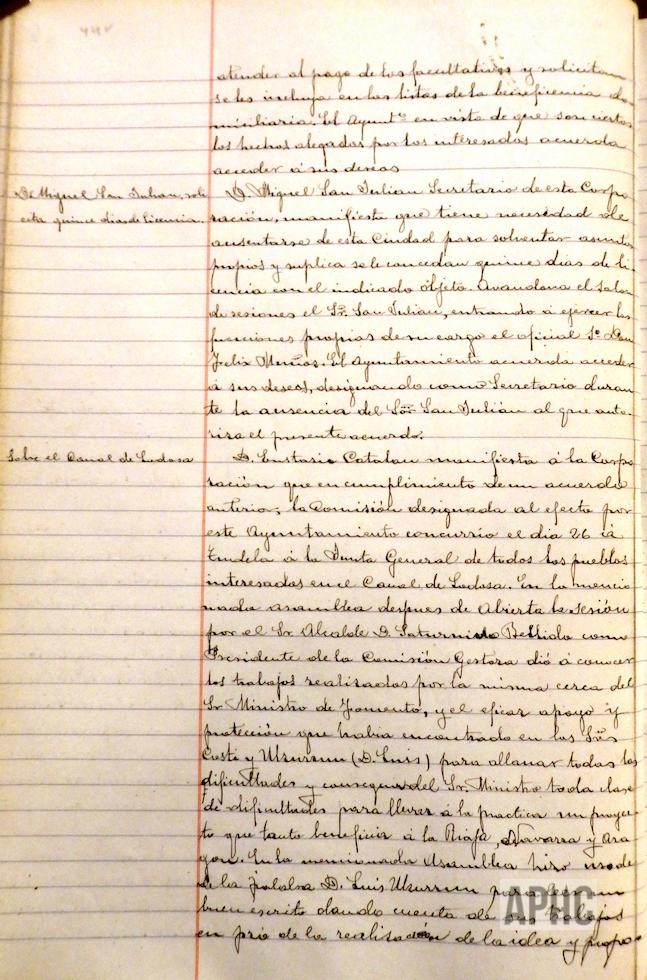 442
atender al pago de los facultativos y solicitan
se les incluya en las listas de la beneficencia do-
miciliaria. El Ayuntº en vista de que son ciertos
los hechos alegados por los interesados acuerda
acceder á sus deseos
D. Miguel San Julian, soli-
cita quince dias de licencia.
D. Miguel San Julian Secretario de esta Corpo-
ración, manifiesta que tiene necesidad de
ausentarse de esta Ciudad para solventar asuntos
propios y suplica se le concedan quince dias de li-
cencia con el indicado objeto. Avandona el Salon
de sesiones el Sr. San Julian, entrando á ejercer las
funciones propias de su cargo el oficial 1º Don
Felix Muños. El Ayuntamiento acuerda acceder
á sus deseos, designando como Secretario duran-
te la ausencia del Sor. San Julián al que auto-
riza el presente acuerdo.
Sobre el Canal de Lodosa
D. Eustasio Catalan manifiesta á la Corpo-
ración que en cumplimiento de un acuerdo
anterior, la Comisión designada al efecto por
este Ayuntamiento concurrio el dia 26 á
Tudela á la Junta General de todos los pueblos
interesados en el Canal de Lodosa. En la mencio-
nada asamblea despues de Abierta la Sesión
por el Sr. Alcalde D. Saturnino Bellido como
Presidente de la Comisión Gestora dió á conocer
los trabajos realizados por la misma cerca del
Sr. Ministro de Fomento, y el eficaz apoyo y
protección que habia encontrado en los Srs
Coste y Uzurrun (D. Luis) para allanar todas las
dificultades y conseguir del Sr. Ministro toda clase
de dificultades para llevar á la practica un proyec-
to que tanto beneficia á la Rioja, Navarra y Ara-
gon. En la mencionada Asamblea hizo uso de
de la Palabra D. Luis Uzurrun para leer un
buen escrito dando cuenta de sus trabajos
en pró de la realisación de la idea y propo-
APHC